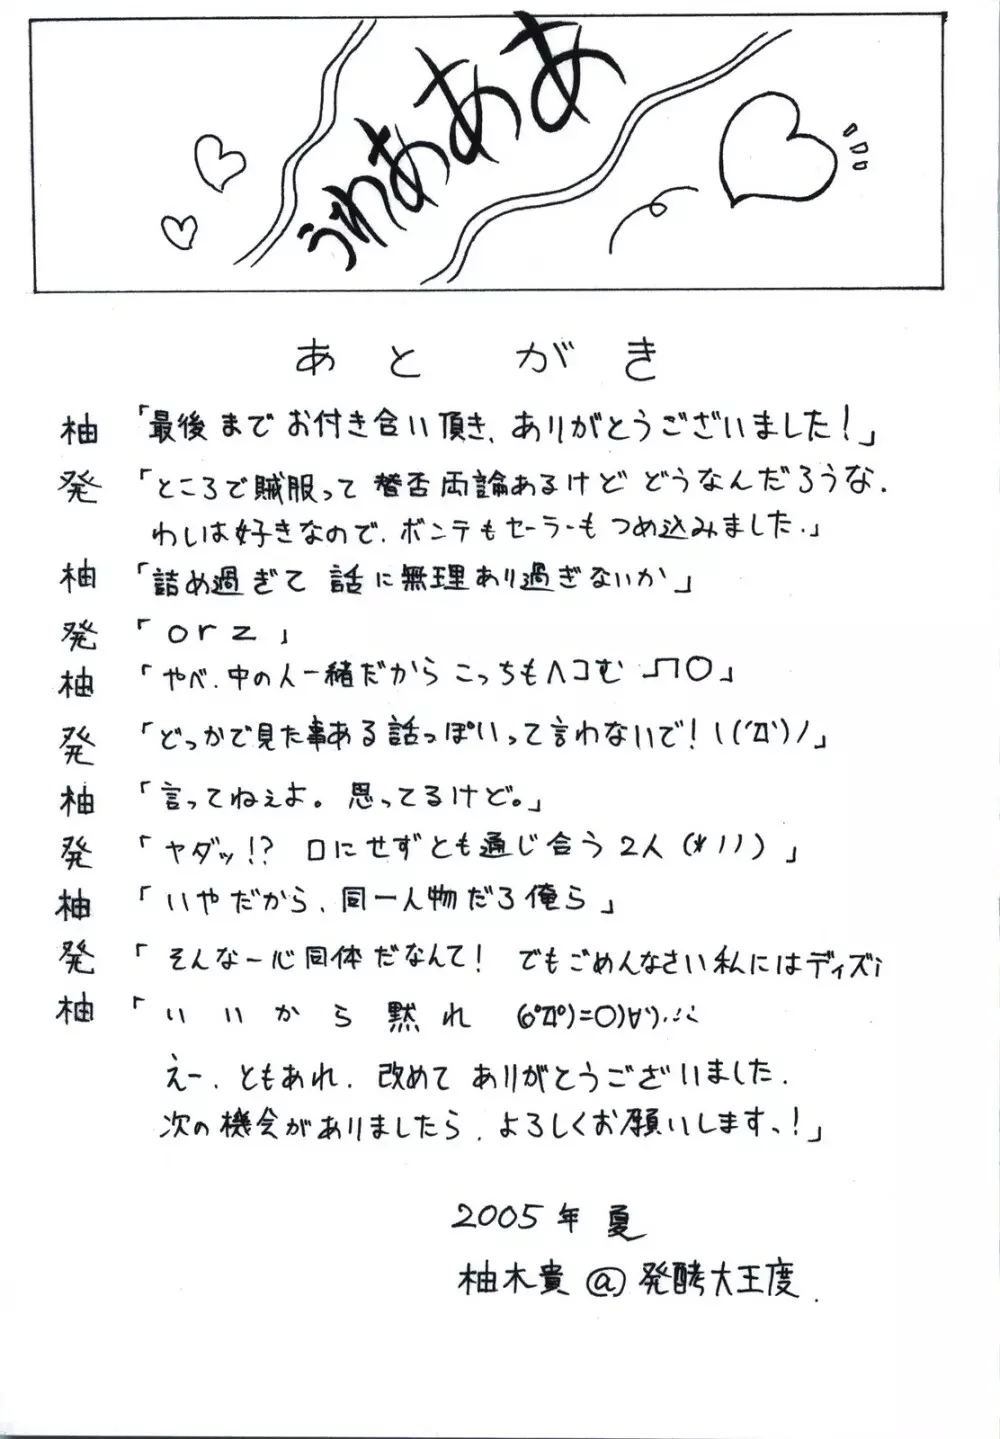 うわあああ
あとがき
柚「最後までお付き合い頂き、ありがとうございました!」
発「ところで賊服って賛否両論あるけどどうなんだろうな.
わしは好きなので、ボンテもセーラーもつめ込みました.」
柚「詰め過ぎて話に無理あり過ぎないか」
発「orz」
柚「やべ、中の人一緒だからこっちもヘコむ _| ̄|○」
発「どっかで見た事ある話っぽいって言わないで!ヽ(´Д`)ノ」
柚「言ってねぇよ。思ってるけど。」
発「ヤダッ!?口にせずとも通じ合う2人(*ノノ)」
柚「いやだから、同一人物だろ俺ら」
発「そんな一心同体だなんて!でもごめんなさい私にはディズi
柚「いいから黙れ (oﾟДﾟ)=○)∀`)..・∵
えー、ともあれ、改めてありがとうございました.
次の機会がありましたら、よろしくお願いします、!」
2005年 夏
柚木貴@発酵大王度.